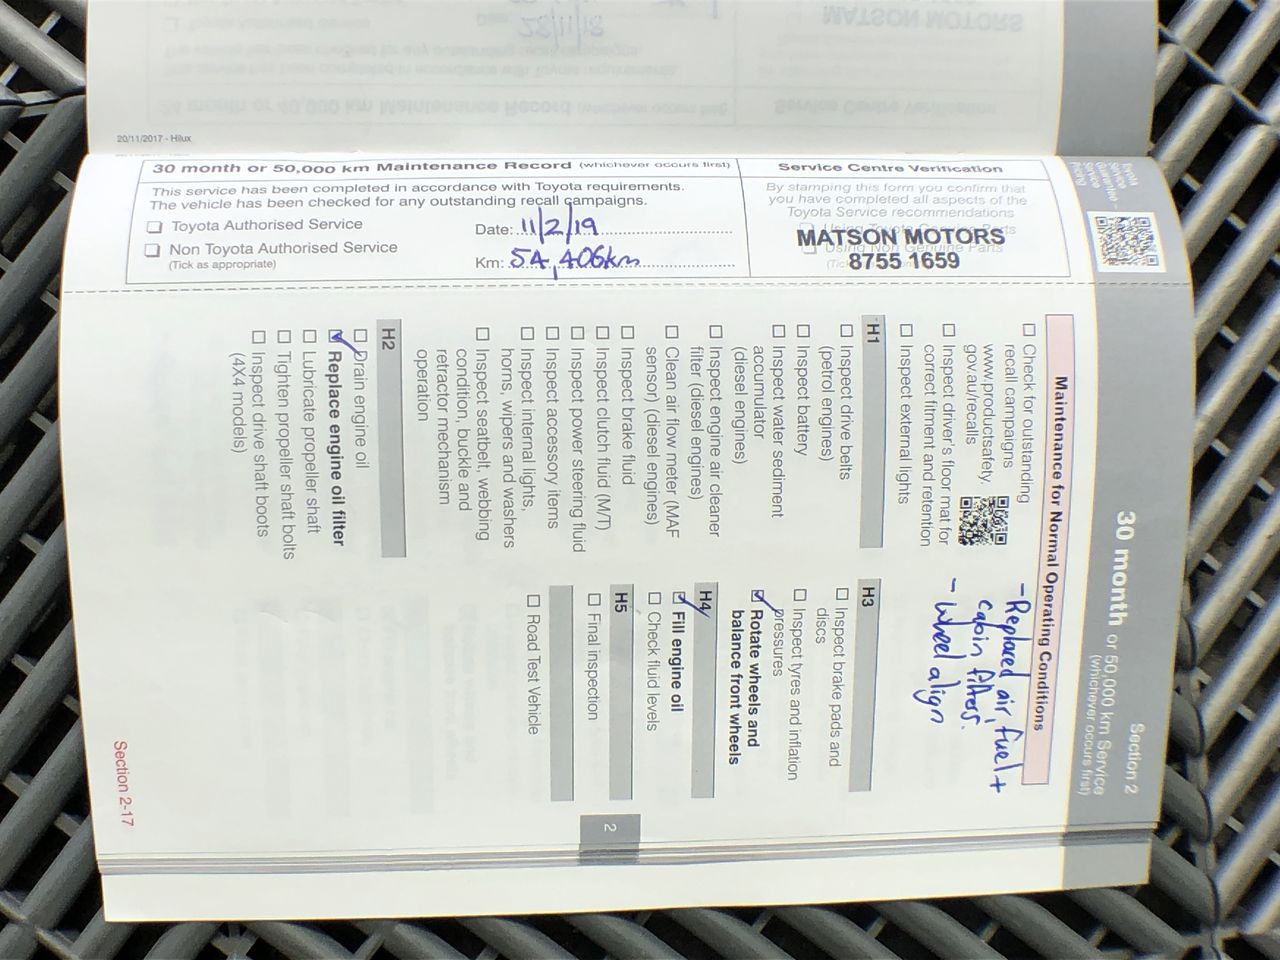 20/11/2017 - Hilux
30 month or 50,000 km Maintenance Record (whichever occurs first)
This service has been completed in accordance with Toyota requirements.
The vehicle has been checked for any outstanding recall campaigns.
Toyota Authorised Service
Non Toyota Authorised Service
(Tick as appropriate)
Date: 11/2/19
Km: 54,406km
Service Centre Verification
By stamping this form you confirm that
you have completed all aspects of the
Toyota Service recommendations
Using Toyota Genuine Parts
MATSON MOTORS
Using Non Genuine Parts
8755 1659
Toyota
Service
Guarantee –
Service
Pricing
Section 2
30 month or 50,000 km Service
(whichever occurs first)
Maintenance for Normal Operating Conditions
Check for outstanding
recall campaigns
www.productsafety.
gov.au/recalls
Inspect driver's floor mat for
correct fitment and retention
Inspect external lights
H1
Inspect drive belts
(petrol engines)
Inspect battery
Inspect water sediment
accumulator
(diesel engines)
Inspect engine air cleaner
filter (diesel engines)
Clean air flow meter (MAF
sensor) (diesel engines)
Inspect brake fluid
Inspect clutch fluid (M/T)
Inspect power steering fluid
Inspect accessory items
Inspect internal lights,
horns, wipers and washers
Inspect seatbelt, webbing
condition, buckle and
retractor mechanism
operation
H2
Drain engine oil
Replace engine oil filter
Lubricate propeller shaft
Tighten propeller shaft bolts
Inspect drive shaft boots
(4X4 models)
- Replaced air, fuel +
cabin filters.
- Wheel align
H3
Inspect brake pads and
discs
Inspect tyres and inflation
pressures
Rotate wheels and
balance front wheels
H4
Fill engine oil
Check fluid levels
H5
Final inspection
Road Test Vehicle
2
Section 2-17